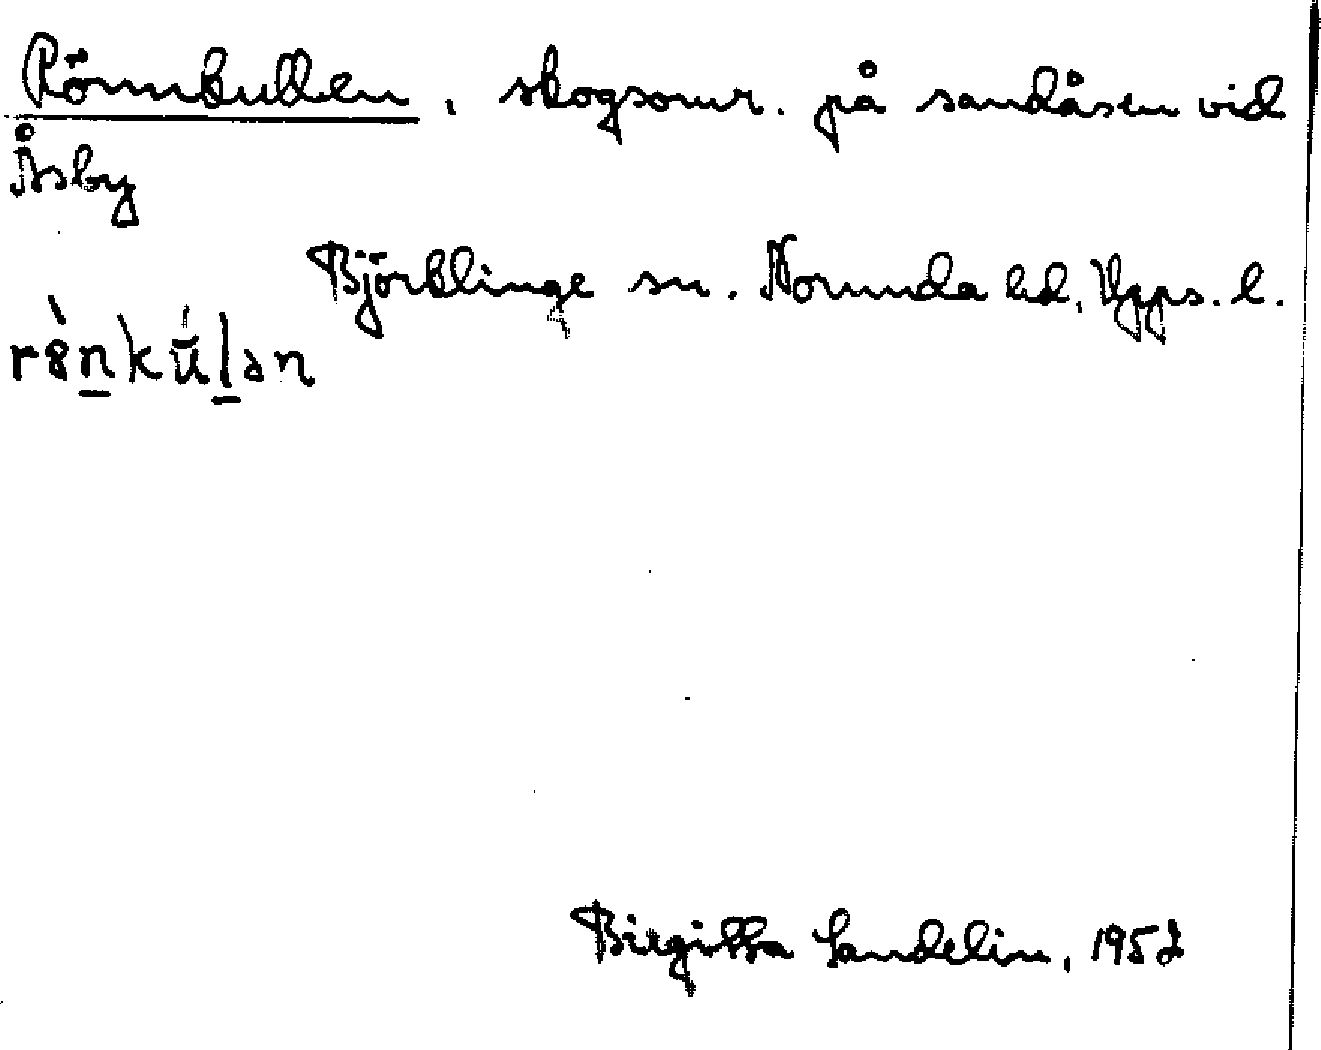 Rönnkullen, skogsomr. på sandåsen vid
Åsby
Björklinge sn. Norunda hd, Upps. l.
Birgitta Sandelin, 1952